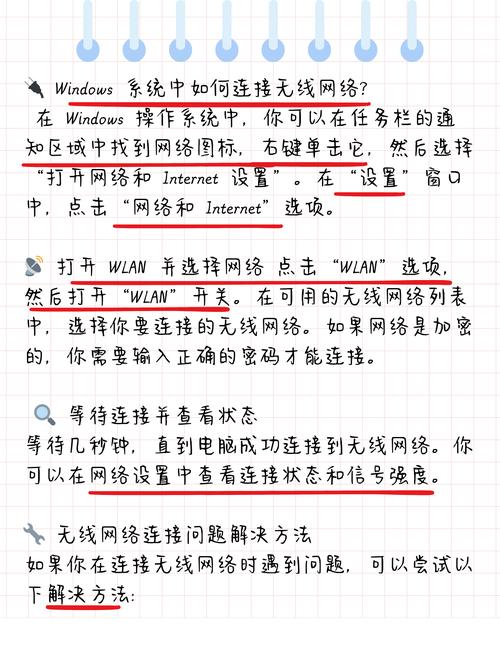 Windows 系统中如何连接无线网络?
在 Windows 操作系统中，你可以在任务栏的通
知区域中找到网络图标，右键单击它，然后选择
“打开网络和 Internet 设置”。在“设置”窗口
中，点击“网络和 Internet”选项。
打开 WLAN 并选择网络 点击“WLAN”选项，
然后打开“WLAN”开关。在可用的无线网络列表
中，选择你要连接的无线网络。如果网络是加密
的，你需要输入正确的密码才能连接。
等待连接并查看状态
等待几秒钟，直到电脑成功连接到无线网络。你
可以在网络设置中查看连接状态和信号强度。
无线网络连接问题解决方法
如果你在连接无线网络时遇到问题，可以尝试以
下解决方法: